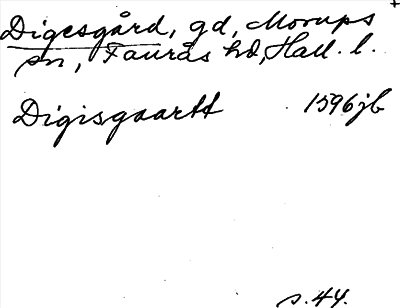 Digesgård, gd, Morups
sn, Faurås hd, Hall. l.
Digisgaartt 1596 jb
s. 44.